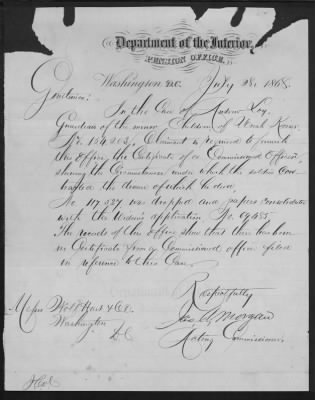 Department of the Interior,
PENSION OFFICE,
Washington D.C. July 28, 1868
Gentlemen:
In the Case of
Guardian of the minor Children of
No. 154,202, Claimant is required to furnish
this office, the Certificate of a Commissioned Officer,
showing the Circumstances under which the soldier Con-
tracted the disease of which he died,
No. 117,327 was dropped and papers consolidated
with the Widow's application No. 69,655.
The records of this office show that there has been
no Certificate from a Commissioned officer filed
in reference to this Case.
Respectfully
Morgan
Acting Commissioner
Messrs Wolf Hart & Co.
Washington
D.C.